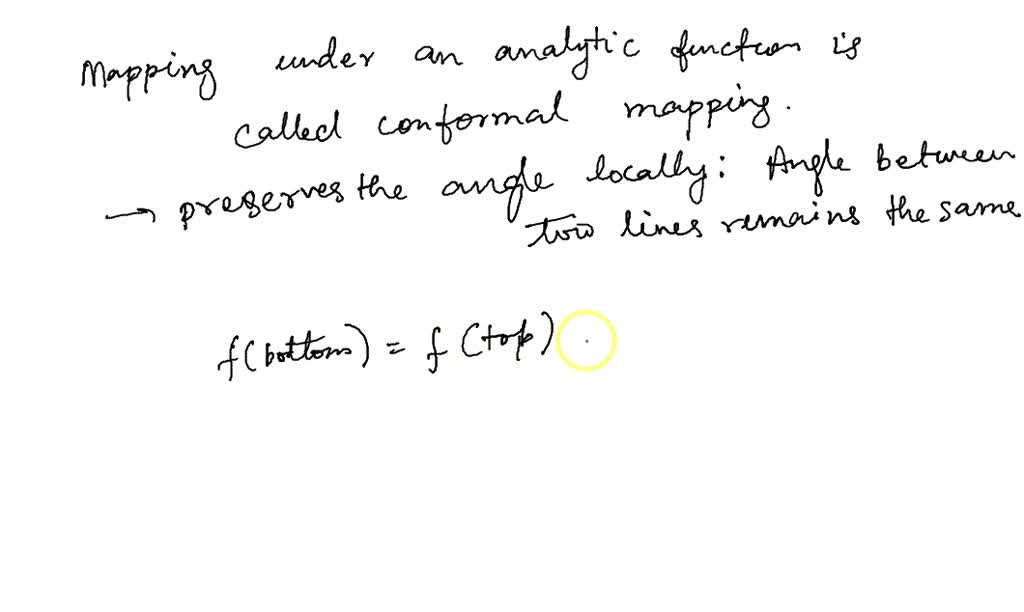 Mapping under an analytic function is
called conformal mapping.
→ preserves the angle locally: Angle between
two lines remains the same
f(bottom) = f(top)